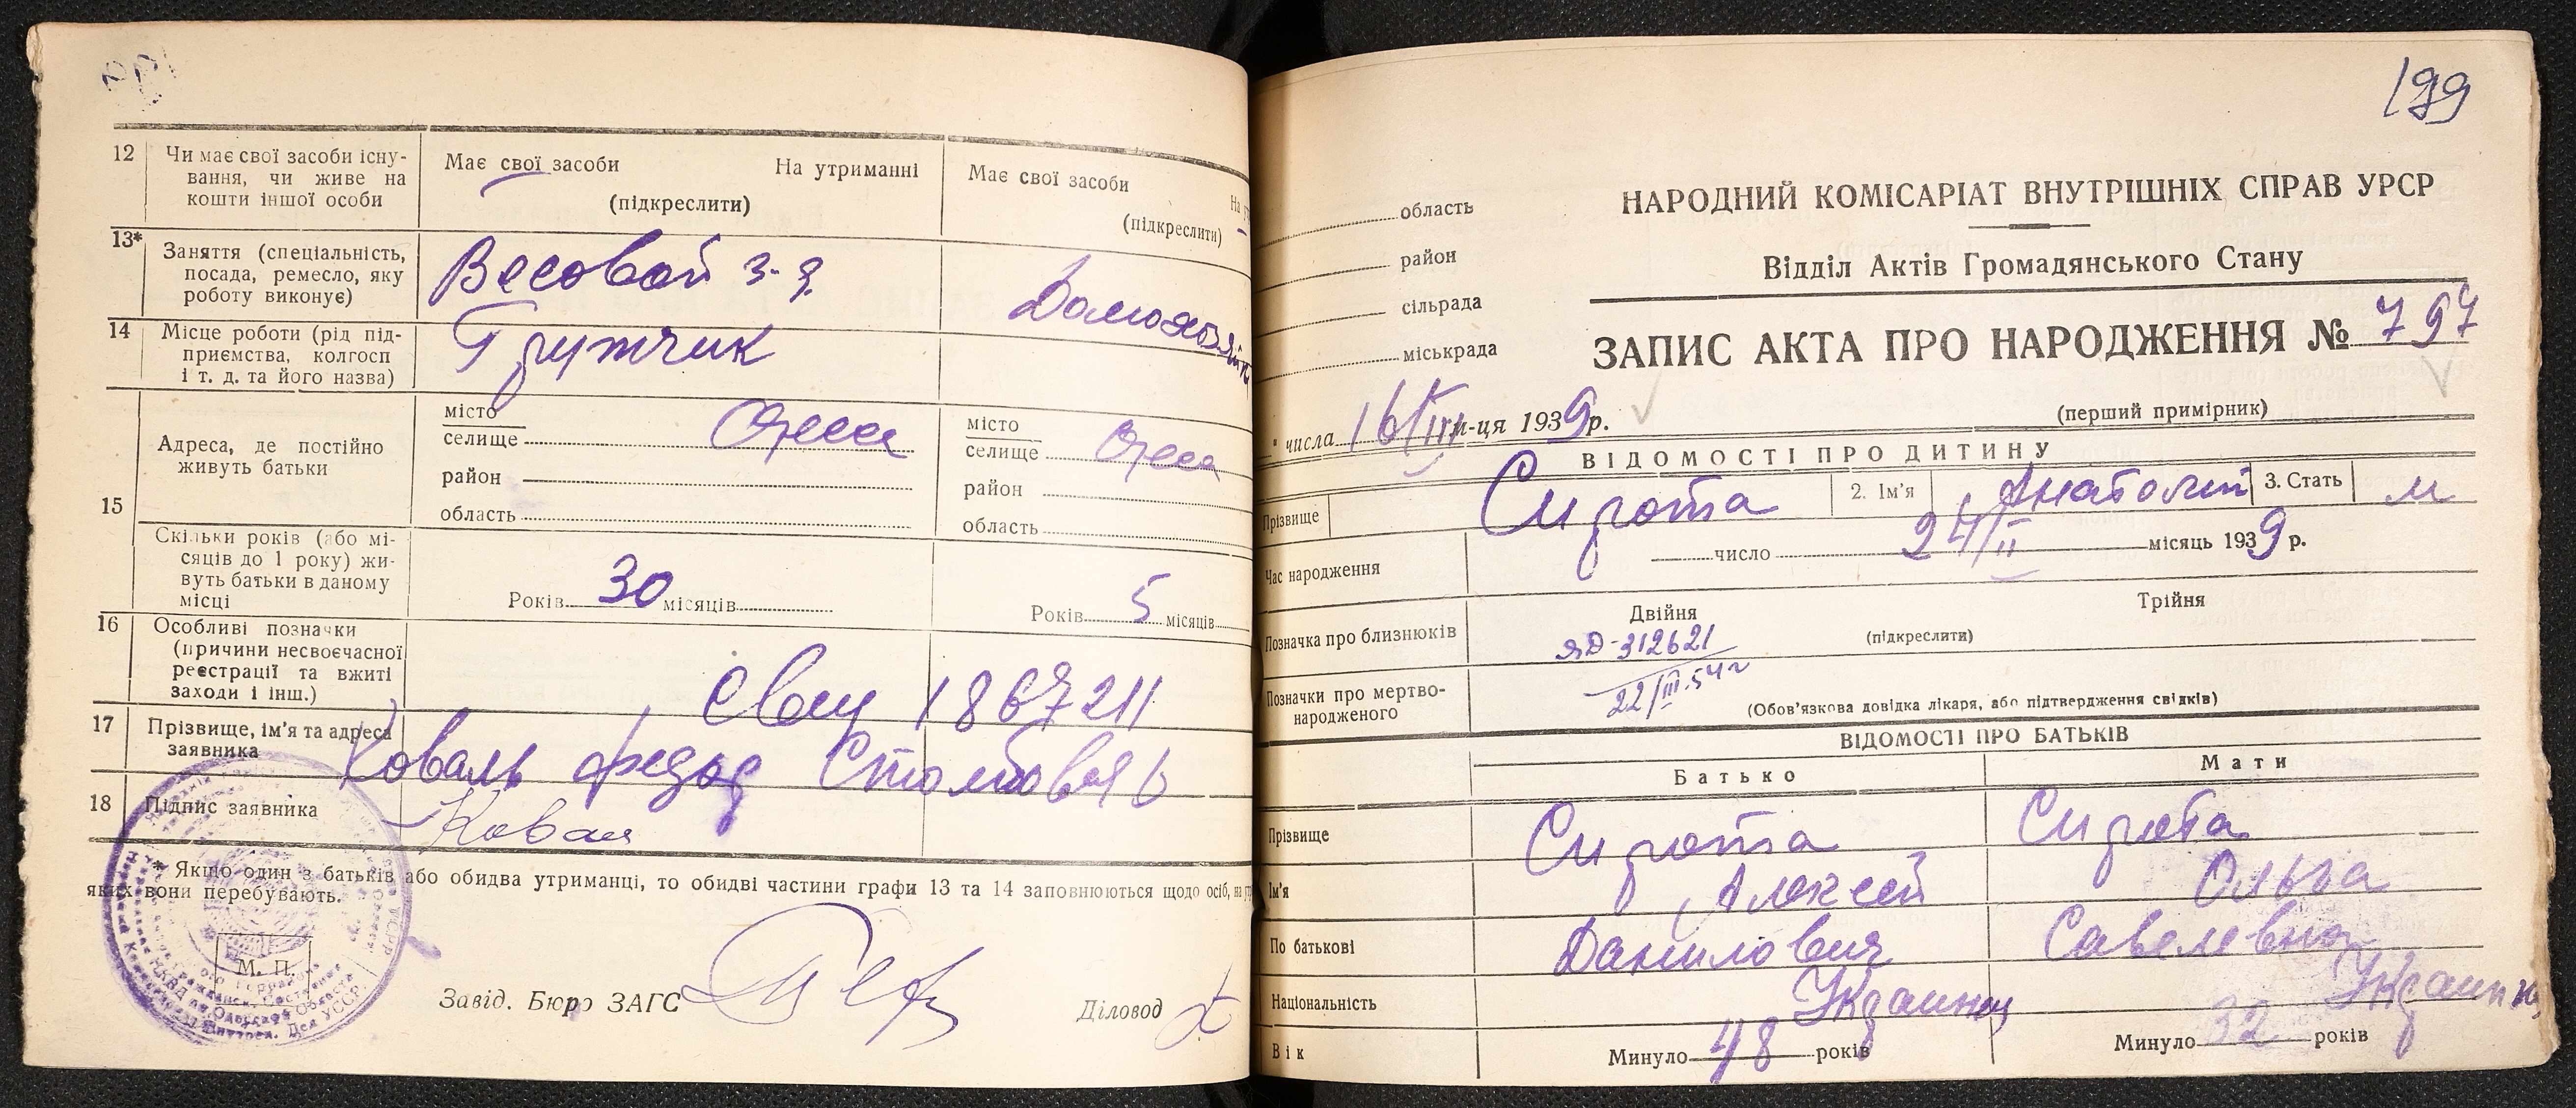 12 Чи має свої засоби існу-
вання, чи живе на
кошти іншої особи
Має свої засоби На утриманні
(підкреслити)
Має свої засоби
(підкреслити)
13* Заняття (спеціальність,
посада, ремесло, яку
роботу виконує)
Весовой з-д
Домохозяйк
14 Місце роботи (рід під-
приємства, колгосп
і т. д. та його назва)
Грузчик
15
Адреса, де постійно
живуть батьки
місто
селище Одесса
район
область
місто
селище Одесса
район
область
Скільки років (або мі-
сяців до 1 року) жи-
вуть батьки в даному
місці
Років 30 місяців
Років 5 місяців
16 Особливі позначки
(причини несвоєчасної
реєстрації та вжиті
заходи і інш.)
1867211
17 Прізвище, ім'я та адреса
заявника
Коваль Федор Столбовая 6
18 Підпис заявника
Ковал
* Якщо один з батьків або обидва утриманці, то обидві частини графи 13 та 14 заповнюються щодо осіб, на
яких вони перебувають.
М. П.
Завід. Бюро ЗАГС
Діловод
199
область
район
сільрада
міськрада
НАРОДНИЙ КОМІСАРІАТ ВНУТРІШНІХ СПРАВ УРСР
Відділ Актів Громадянського Стану
ЗАПИС АКТА ПРО НАРОДЖЕННЯ № 797
(перший примірник)
" числа 16/III м-ця 1939 р.
ВІДОМОСТІ ПРО ДИТИНУ
Прізвище Сирота 2. Ім'я Анатолий 3. Стать м
Час народження
число 24/II місяць 1939 р.
Позначка про близнюків
Двійня Трійня
(підкреслити)
ЯД-312621
22/III.54 г
Позначки про мертво-
народженого
(Обов'язкова довідка лікаря, або підтвердження свідків)
ВІДОМОСТІ ПРО БАТЬКІВ
Батько Мати
Прізвище Сирота Сирота
Ім'я Алексей Ольга
По батькові Данилович Савелевна
Національність Украинец Украинка
Вік Минуло 48 років Минуло 32 років